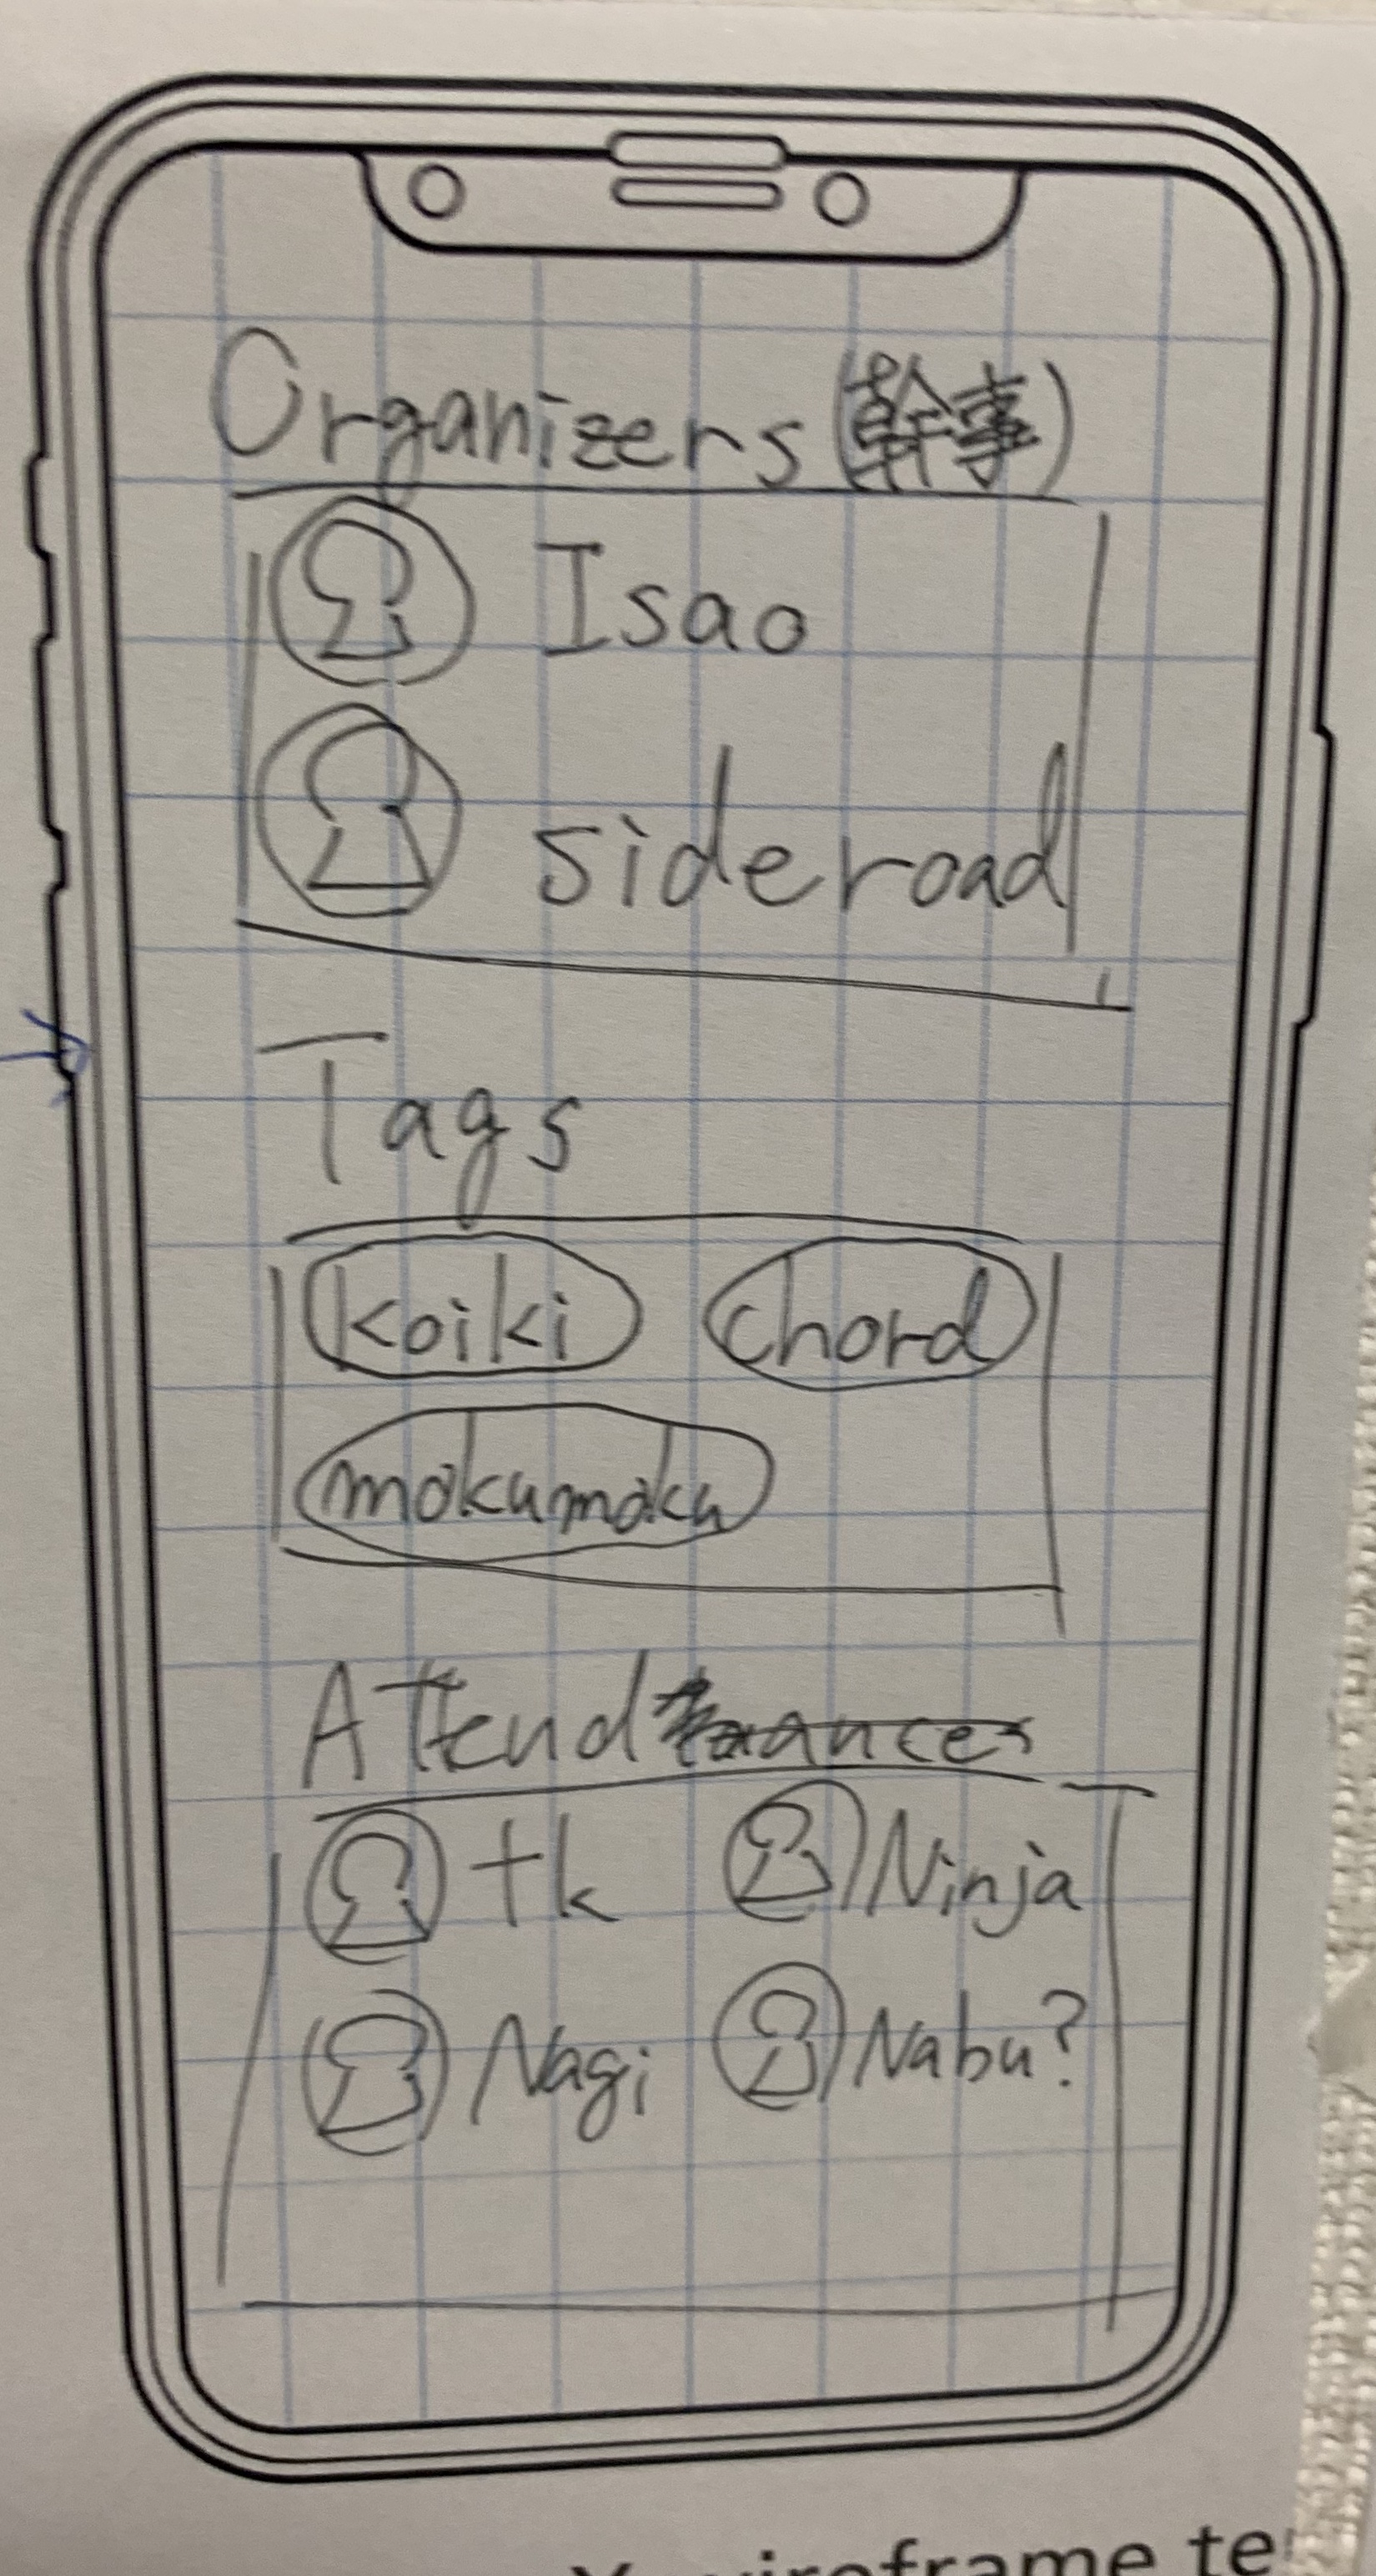 Organizers (幹事)
Isao
sideroad
Tags
koiki chord
mokumoku
Attendances
tk Ninja
Nagi Nabu?
wireframe te